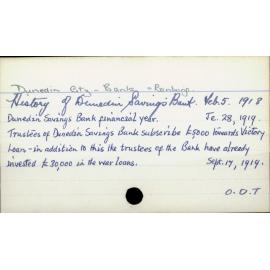 Dunedin City - Banks & Banking
History of Dunedin Savings Bank. Feb. 5. 1918
Dunedin Savings Bank financial year. Je. 28, 1919.
Trustees of Dunedin Savings Bank subscribe £5000 towards Victory
Loan - in addition to this the trustees of the Bank have already
invested £30,000 in the war loans. Sept. 17, 1919.
O.D.T